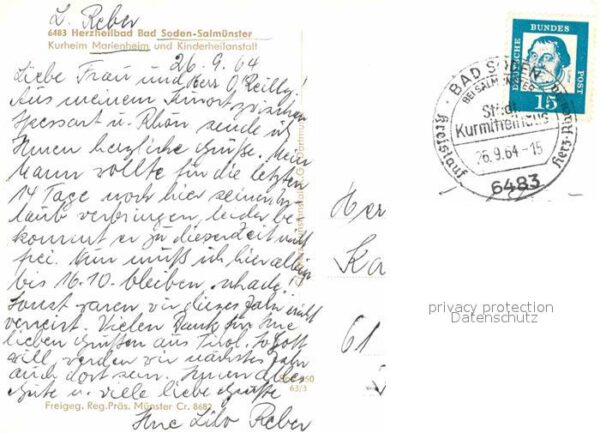 L. Reber
6483 Herzheilbad Bad Soden-Salmünster
Kurheim Marienheim und Kinderheilanstalt
26.9.64
Liebe Frau und Herr O'Reilly!
Aus meinem Kurort zwischen
Spessart u. Rhön sende ich
Ihnen herzliche Grüße. Mein
Mann wollte für die letzten
14 Tage noch hier seinen Ur
laub verbringen, leider be
kommt er zu dieser Zeit nicht
frei. Nun muß ich hier allein
bis 16.10. bleiben, schade,
sonst waren wir dieses Jahr nicht
verreist. Vielen Dank für Ihre
lieben Grüße aus Tirol. So Gott
will, werden wir nächstes Jahr
auch dort sein. Ihnen alles
Gute u. viele liebe Grüße
Ihre Lilo Reber
63/3
Freigeg. Reg.Präs. Münster Cr. 8682
DEUTSCHE BUNDES POST
15
BAD SODEN
BEI SALMÜNSTER
Stadt
Kurmittelhaus
26.9.64-15
Kreislauf
Herz
6483
Her
Ka
61
privacy protection
Datenschutz